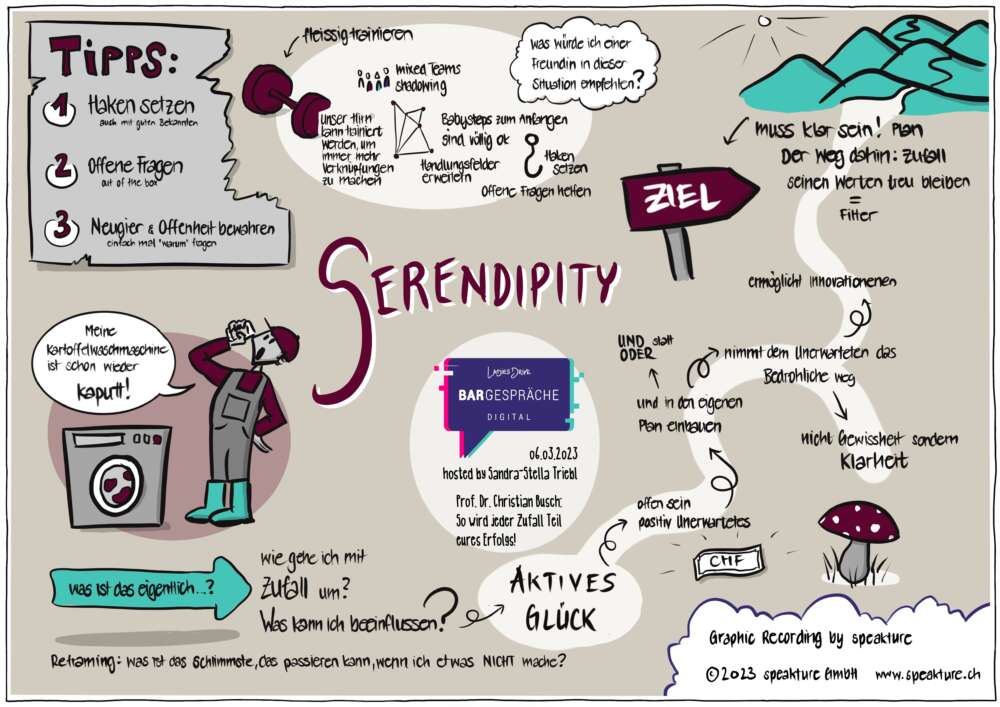 Tipps:
1 Haken setzen
auch mit guten Bekannten
2 Offene Fragen
out of the box
3 Neugier & Offenheit bewahren
einfach mal "warum" fragen
fleissig trainieren
mixed Teams
shadowing
unser Hirn
kann trainiert
werden, um
immer mehr
Verknüpfungen
zu machen
Handlungsfelder
erweitern
Babysteps zum Anfangen
sind völlig ok
Haken
setzen
Offene Fragen helfen
was würde ich einer
Freundin in dieser
Situation empfehlen?
ZIEL
muss klar sein! Plan
Der weg dahin: Zufall
seinen Werten treu bleiben
=
Filter
SERENDIPITY
Meine
Kartoffelwaschmaschine
ist schon wieder
kaputt!
LADIES DRIVE
BARGESPRÄCHE
DIGITAL
06.03.2023
hosted by Sandra-Stella Triebl
Prof. Dr. Christian Busch:
So wird jeder Zufall Teil
eures Erfolgs!
ermöglicht Innovationenen
UND statt
ODER
nimmt dem Unerwarteten das
Bedrohliche weg
und in den eigenen
Plan einbauen
nicht Gewissheit sondern
Klarheit
offen sein
positiv Unerwartetes
CHF
was ist das eigentlich...?
wie gehe ich mit
Zufall um?
Was kann ich beeinflussen?
AKTIVES
GLÜCK
Reframing: was ist das schlimmste, das passieren kann, wenn ich etwas NICHT mache?
Graphic Recording by speakture
©2023 speakture GmbH www.speakture.ch